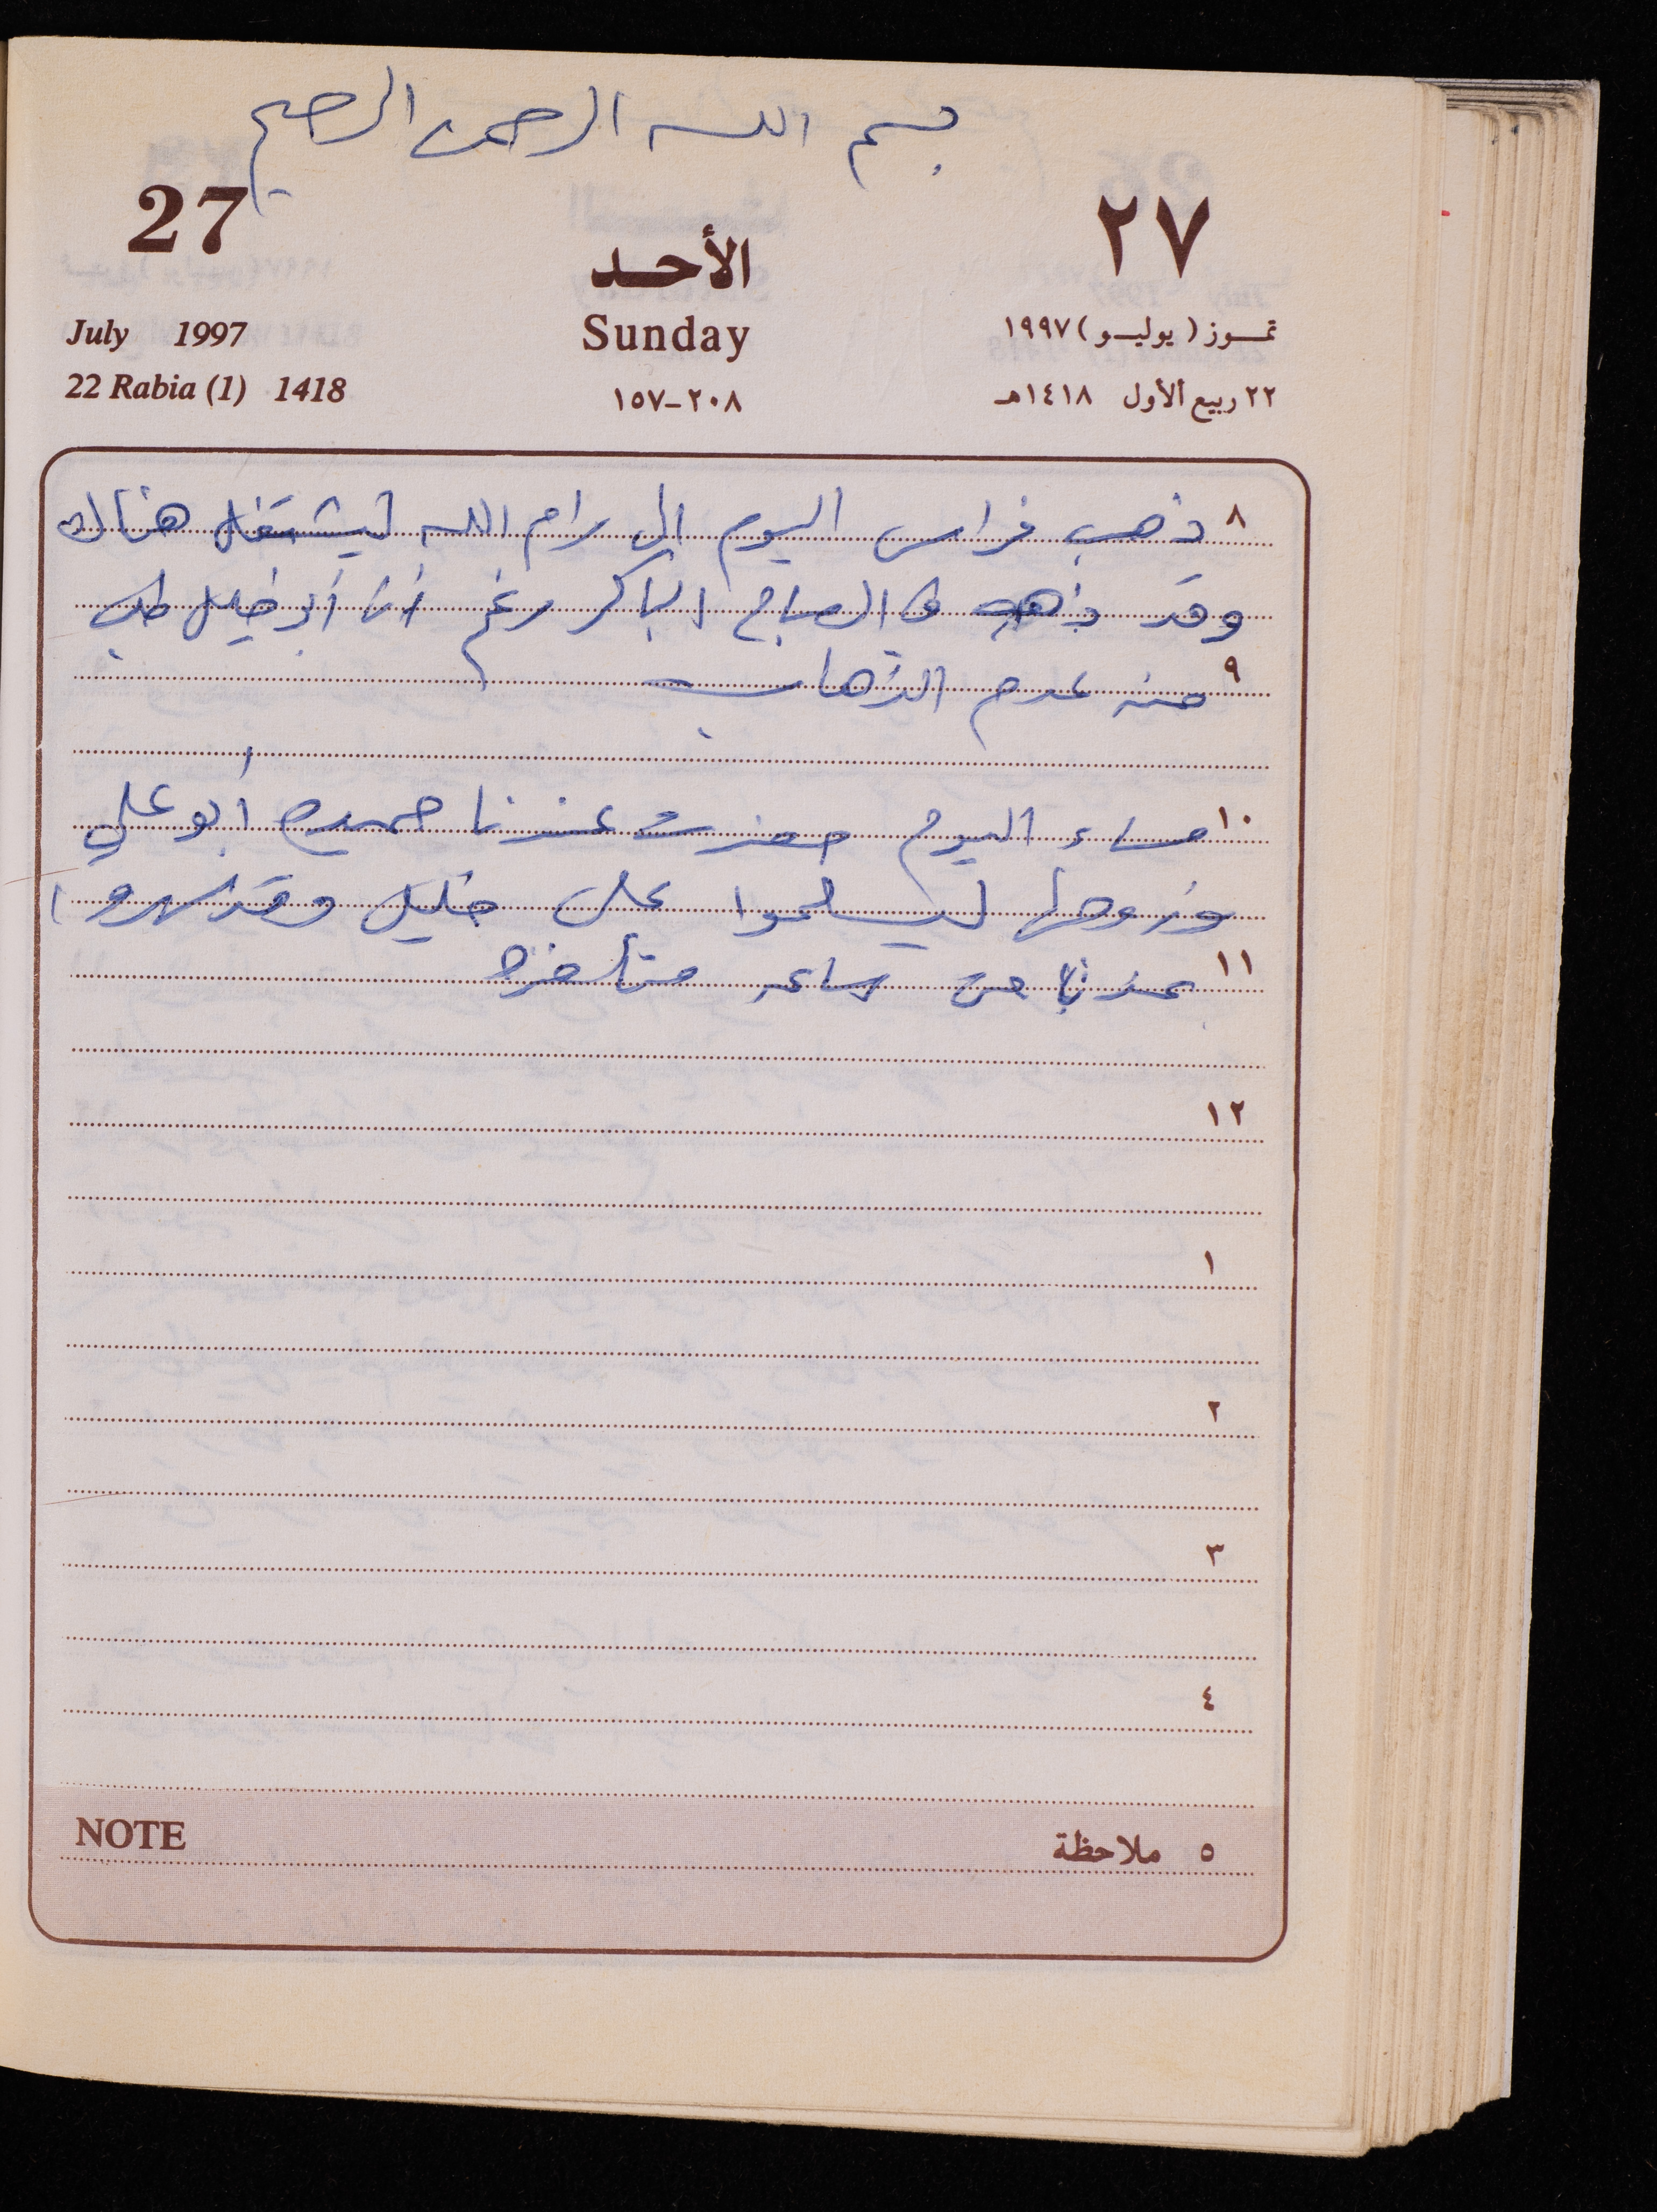 بسم الله الرحمن الرحيم
27
٢٧
الأحد
Sunday
July 1997
تمـوز ( يوليـو ) ١٩٩٧
22 Rabia (1) 1418
١٥٧-٢٠٨
٢٢ ربيع الأول ١٤١٨هـ
٨ ذهب فراس اليوم الى رام الله ليشتغل هناك
وقد ذهب في الصباح الباكر رغم أن أبو خليل طلب
٩ منه عدم الذهاب
١٠ مساء اليوم حضرت عندنا حميده أبو علي
وزوجها ليسلموا على خليل وقد سهروا
١١ عندنا من ساعه متأخره
١٢
١
٢
٣
٤
NOTE
٥ ملاحظة